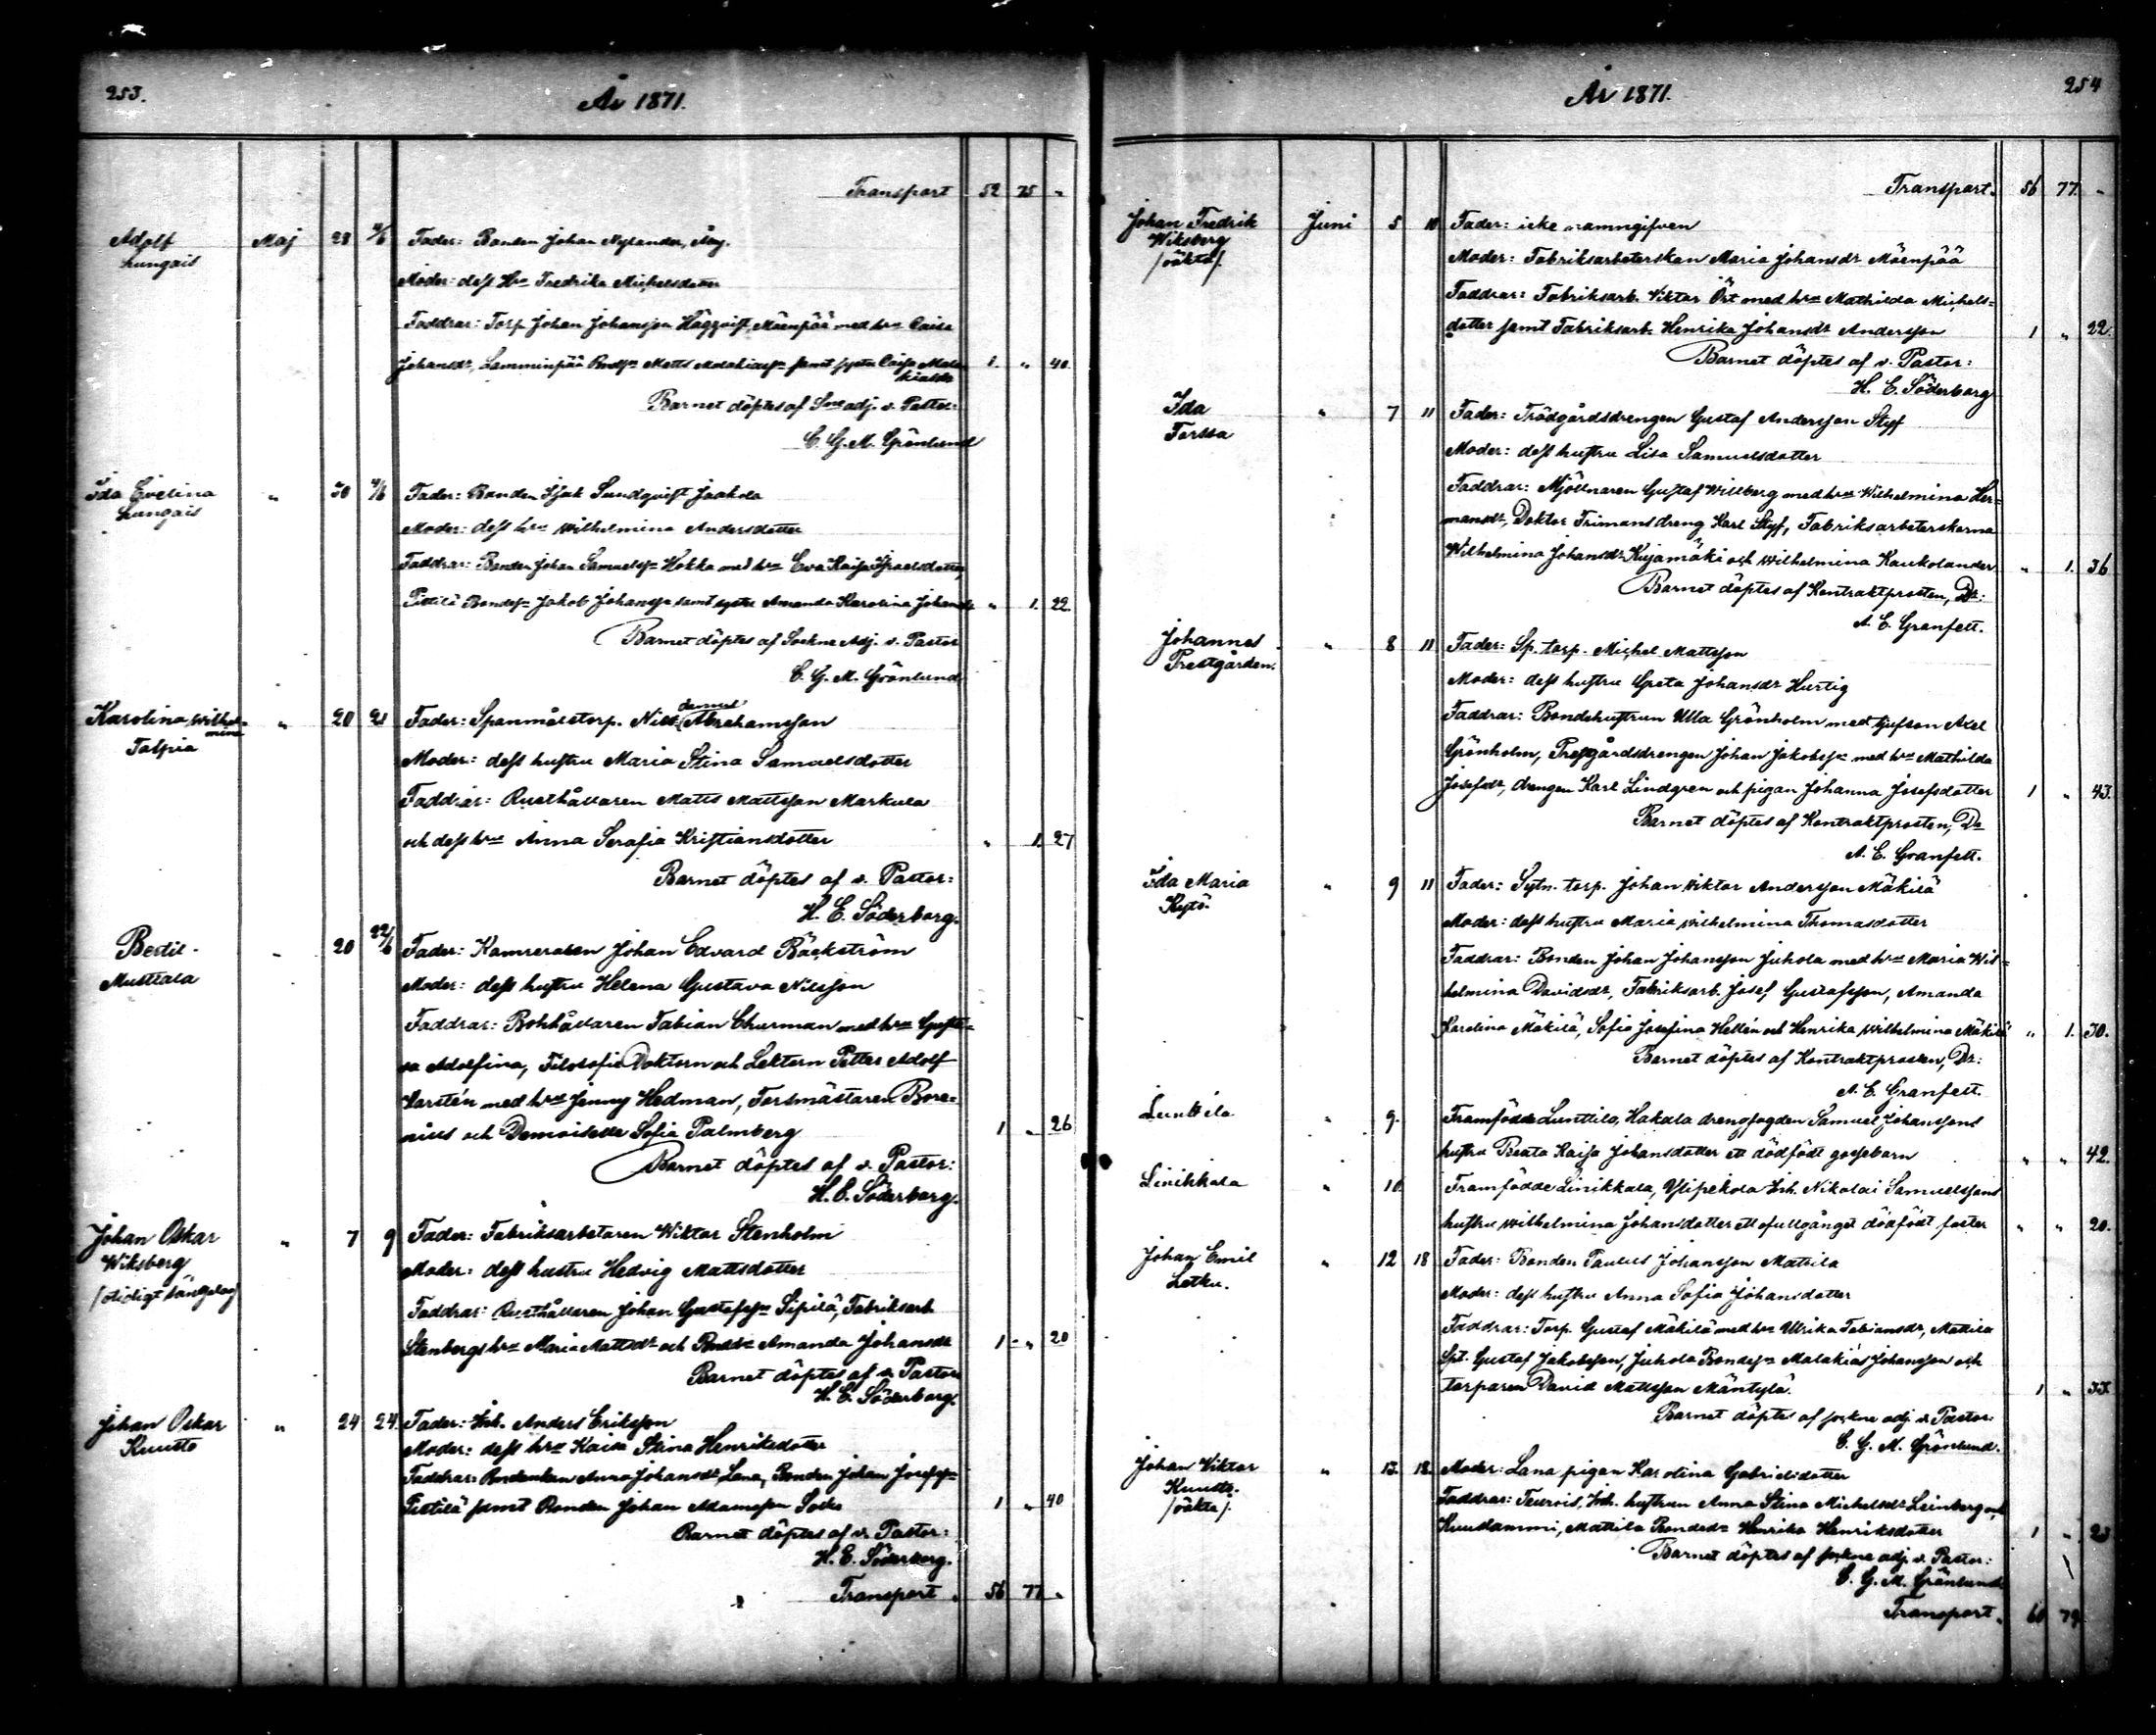 253.
År 1871.
Transport 52 75 "
Adolf Maj 28 4/6 Fader: Bonden Johan Nylander, Äng.
Lungais
Moder: dess Hu Fredrika Michelsdotter
Faddrar: Torp. Johan Johansson Häggqvist, Mäenpää med hu Caisa
Johansdr, Lamminpää Bondsn Matts Malakiassn samt syster Caisa Mala 1. " 40.
kiasdr
Barnet döptes af Sne adj. v. Pastor:
C. G. M. Grönlund
Ida Evelina " 30 4/6 Fader: Bonden Isak Sundqvist Jaakola
Lungais
Moder: dess hu Wilhelmina Andersdotter
Faddrar: Bonden Johan Samuelssn Hokka med hu Eva Kaisa Israelsdotter,
Pietilä Bondesn Jakob Johansson samt syster Amanda Karolina Johansdr " 1. 22.
Barnet döptes af Sockne Adj. v. Pastor
C. G. M. Grönlund
Karolina Wilhel- " 20 21 Fader: Spanmålstorp. Nils Abrahamsson
mina
Talpia
Moder: dess hustru Maria Stina Samuelsdotter
Faddrar: Rusthållaren Matts Mattsson Markula
och dess hu Anna Serafia Kristiansdotter " 1. 27
Barnet döptes af v. Pastor:
H. E. Söderborg.
Bertil " 20 22/6 Fader: Kamreraren Johan Edvard Bäckström
Mustiala
Moder: dess hustru Helena Gustava Nilsson
Faddrar: Bokhållaren Fabian Churman med hu Gusta-
va Adolfina, Filosofie Doktorn och Lektorn Petter Adolf
Karstén med hu Jenny Hedman, Forsmästaren Bore-
nius och Demoiselle Sofia Palmberg 1 " 26
Barnet döptes af v. Pastor:
H. E. Söderborg.
Johan Oskar " 7 9 Fader: Fabriksarbetaren Wiktor Stenholm
Wiksberg
Moder: dess hustru Hedvig Mattsdotter
Faddrar: Rusthållaren Johan Gustafssn Sipilä, Fabriksarb
Stenbergs hu Maria Mattsdr och Bondr Amanda Johansdr 1 " 20
Barnet döptes af v. Pastor
H. E. Söderborg.
Johan Oskar " 24 24. Fader: Inh. Anders Eriksson
Kuusto
Moder: dess hu Kaisa Stina Henriksdotter
Faddrar: Bondenkan Anna Johansdr Lana, Bonden Johan Josefssn
Pietilä samt Bonden Johan Adamsson Socko 1 " 40
Barnet döptes af v. Pastor:
H. E. Söderborg.
Transport. 56 77 "
254
År 1871.
Transport. 56 77. "
Johan Fredrik Juni 5 10 Fader: icke namngifven
Wiksberg
/oäkta/.
Moder: Fabriksarbeterskan Maria Johansdr Mäenpää
Faddrar: Fabriksarb. Viktor Öst med hu Mathilda Michels-
dotter samt Fabriksarb. Henrika Johansdr Andersson 1 " 22.
Barnet döptes af v. Pastor:
H. E. Söderborg
Ida " 7 11 Fader: Trädgårdsdrengen Gustaf Andersson Styf
Forssa
Moder: dess hustru Lisa Samuelsdotter
Faddrar: Mjölnaren Gustaf Willberg med hu Wilhelmina Her-
mansdr, Doktor Trimans dreng Karl Styf, Fabriksarbeterskorna
Wilhelmina Johansdr Kujamäki och Wilhelmina Kaukolander " 1. 36
Barnet döptes af Kontraktprosten, Dr:
A. E. Granfelt.
Johannes " 8 11 Fader: Sp. torp. Michel Mattsson
Prestgården.
Moder: dess hustru Greta Johansdr Hurtig
Faddrar: Bondehustrun Ulla Grönholm med styfson Axel
Grönholm, Prestgårdsdrengen Johan Jakobssn med hu Mathilda
Josefsdr, drengen Karl Lindgren och pigan Johanna Josefsdotter 1 " 43.
Barnet döptes af Kontraktprosten, Dr
A. E. Granfelt.
Ida Maria " 9 11 Fader: Sytn. torp. Johan Viktor Andersson Mäkilä
Kytö.
Moder: dess hustru Maria Wilhelmina Thomasdotter
Faddrar: Bonden Johan Johansson Juhola med hu Maria Wil-
helmina Davidsdr, Fabriksarb. Josef Gustafsson, Amanda
Karolina Mäkilä, Sofia Josefina Hellén och Henrika Wilhelmina Mäkilä " 1. 30.
Barnet döptes af Kontraktprosten, Dr:
A. E. Granfelt.
Lunttila " 9. Framfödde Lunttila, Hakala drengfogden Samuel Johanssons
hustru Beata Kaisa Johansdotter ett dödfödt gossebarn " " 42.
Linikkala " 10 Framfödde Linikkala, Ylipekola Inh. Nikolai Samuelssons
hustru Wilhelmina Johansdotter ett ofullgånget dödfödt foster " " 20.
Johan Emil " 12 18 Fader: Bonden Paulus Johansson Mattila
Letku.
Moder: dess hustru Anna Sofia Johansdotter
Faddrar: Torp. Gustaf Mäkilä med hu Ulrika Fabiansdr, Mattila
Spt. Gustaf Jakobsson, Juhola Bondesn Malakias Johansson och
torparen David Mattsson Mäntylä. 1 " 33.
Barnet döptes af sockne adj. v. Pastor:
C. G. M. Grönlund.
Johan Viktor " 13. 18. Moder: Lana pigan Karolina Gabrielsdotter
Kuusto.
/oäkta/.
Faddrar: Teurois, Inh. hustrun Anna Stina Michelsdr Leinberg och
Kuusammi, Mattila Bondedr Henrika Henriksdotter 1 " 23
Barnet döptes af sockne adj. v. Pastor:
C. G. M. Grönlund
Transport. 60 79.